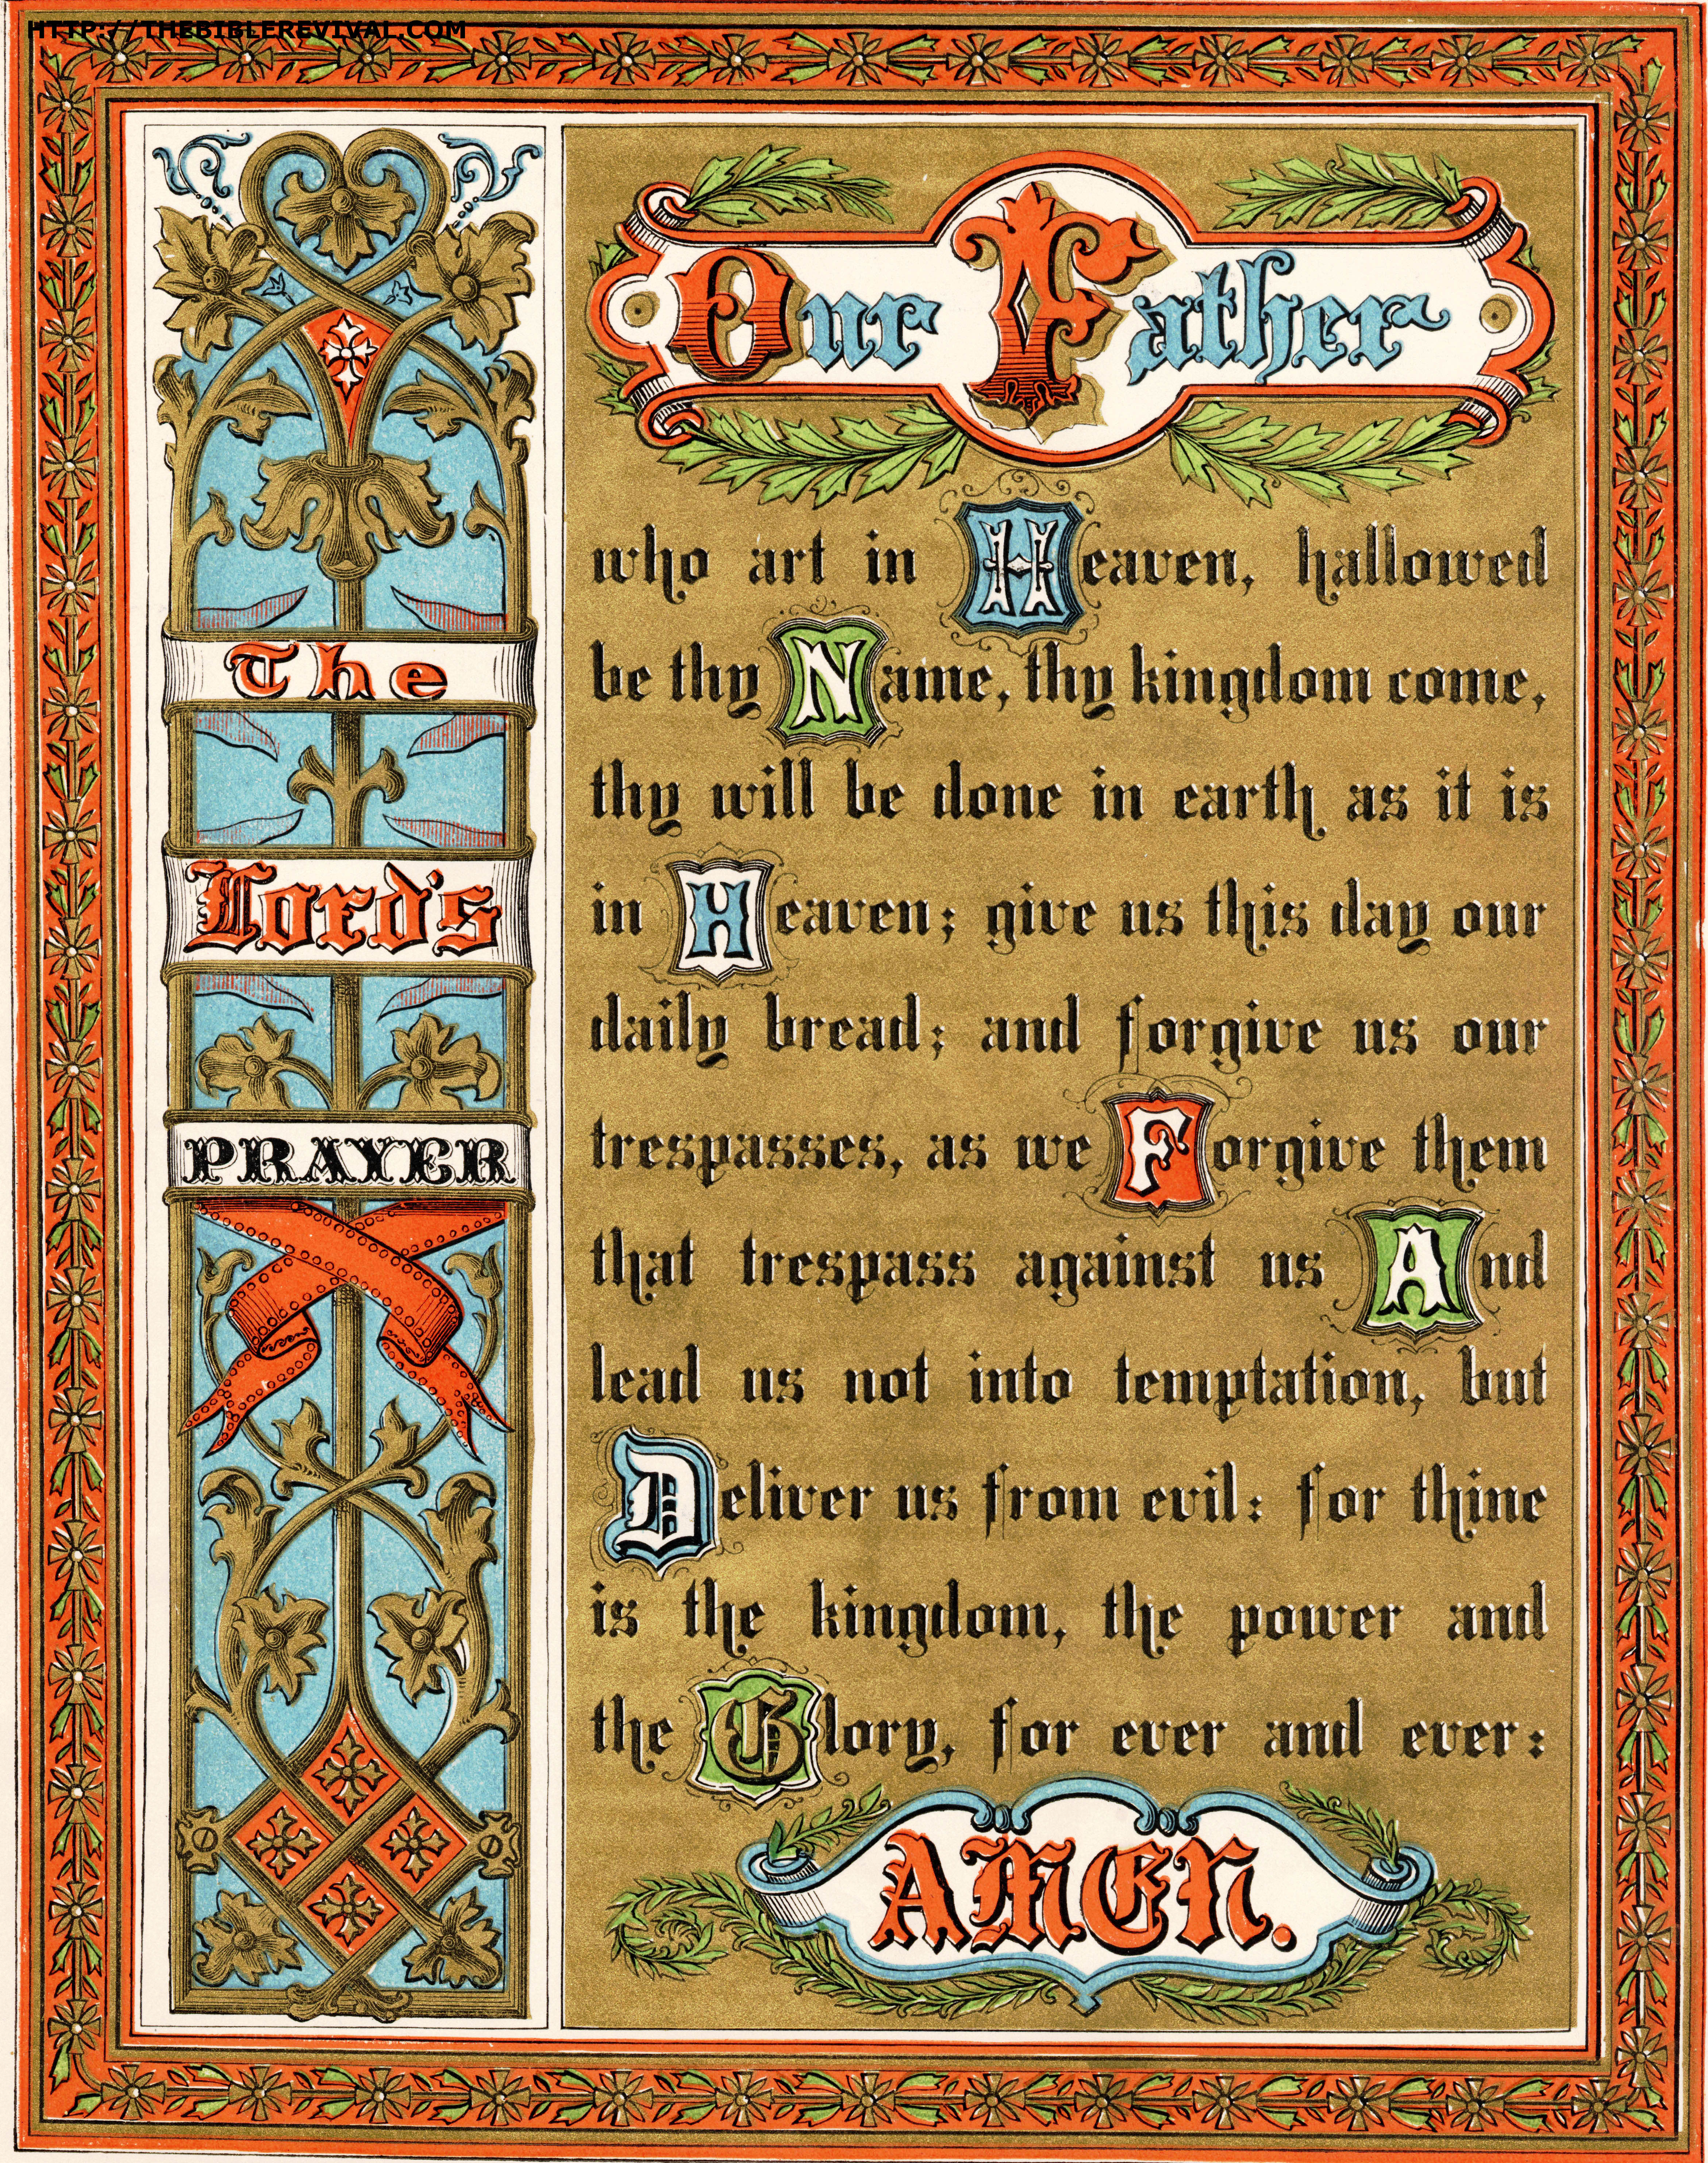 HTTP://THEBIBLEREVIVAL.COM
The
Lord's
PRAYER
Our Father
who art in Heaven, hallowed
be thy Name, thy kingdom come,
thy will be done in earth as it is
in Heaven; give us this day our
daily bread; and forgive us our
trespasses, as we Forgive them
that trespass against us And
lead us not into temptation, but
Deliver us from evil: for thine
is the kingdom, the power and
the Glory, for ever and ever:
AMEN.